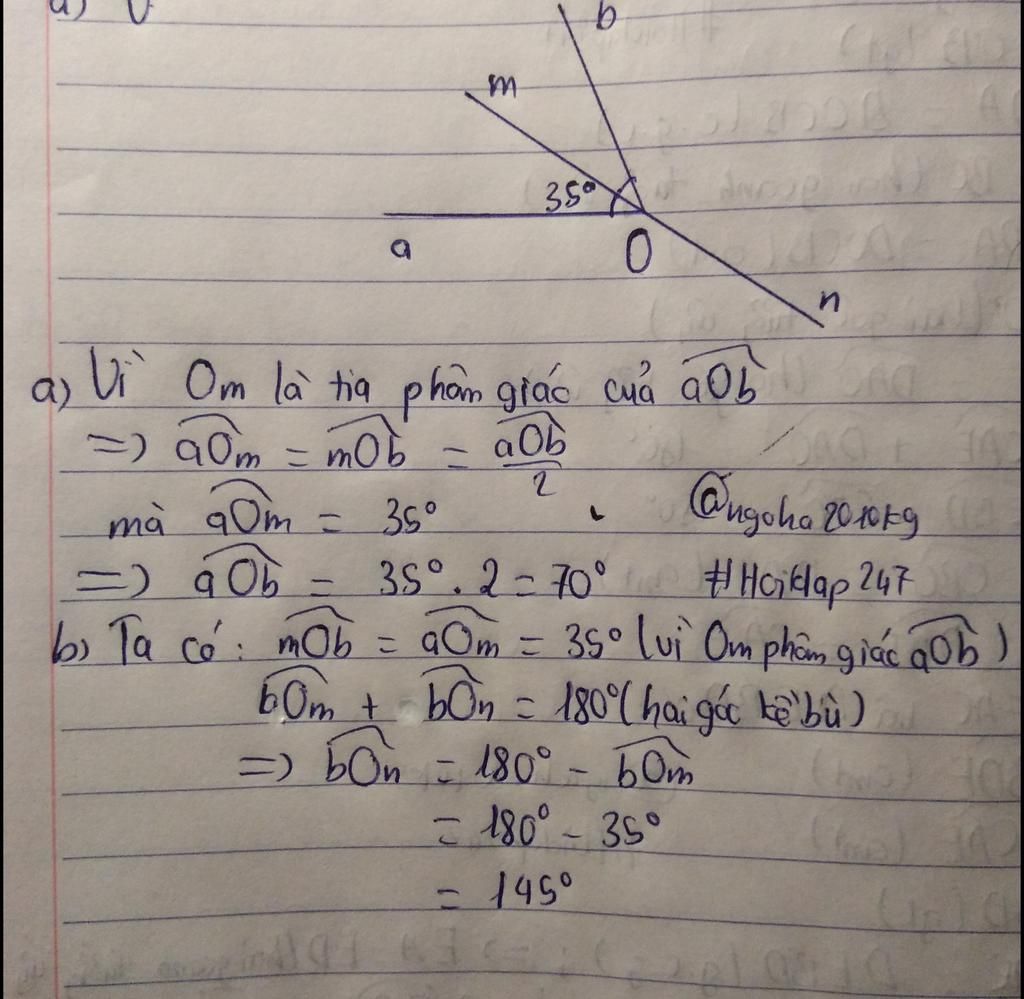 b
m
35°
a
O
n
a) Vì Om là tia phân giác của aOb
=> aOm = mOb = aOb/2
mà aOm = 35° @ngoha2010kg
=> aOb = 35° . 2 = 70° #Hoiđap247
b) Ta có : mOb = aOm = 35° (vì Om phân giác aOb)
bOm + bOn = 180° (hai góc kề bù)
=> bOn = 180° - bOm
= 180° - 35°
= 145°